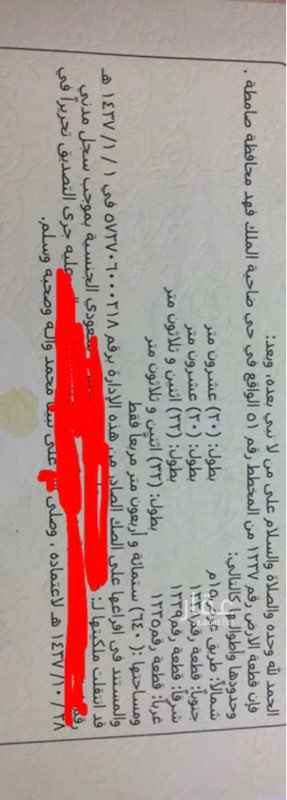 الحمد لله وحده والصلاة والسلام على من لا نبي بعده، وبعد:
فإن قطعة الارض رقم ١٢٣٧ من المخطط رقم ٥١ الواقع في حى ضاحية الملك فهد محافظة صامطة .
وحدودها واطوالها كالتالي:
شمالاً: طريق م بطول: (٢٠) عشرون متر
جنوباً: قطعة رقم بطول: (٢٠) عشرون متر
شرقاً: قطعة رقم ١٢٣٩ بطول: (٣٢) اثنين و ثلاثون متر
غرباً: قطعة رقم ١٢٣٥ بطول: (٣٢) اثنين و ثلاثون متر
ومساحتها: (٦٤٠) ستمائة و أربعون متر مربعا فقط
والمستند في افراغها على الصك الصادر من هذه الإدارة برقم ٥٧٣٧٠٦٠٠٠٢١٨ في ١ / ١ / ١٤٣٧ هـ
قد انتقلت ملكيتها لـ: سعودي الجنسية بموجب سجل مدني
رقم عليه جرى التصديق تحريراً في
٢٨ / ١٠ / ١٤٣٧ هـ لاعتماده ، وصلى على نبينا محمد وآله وصحبه وسلم.
عقار